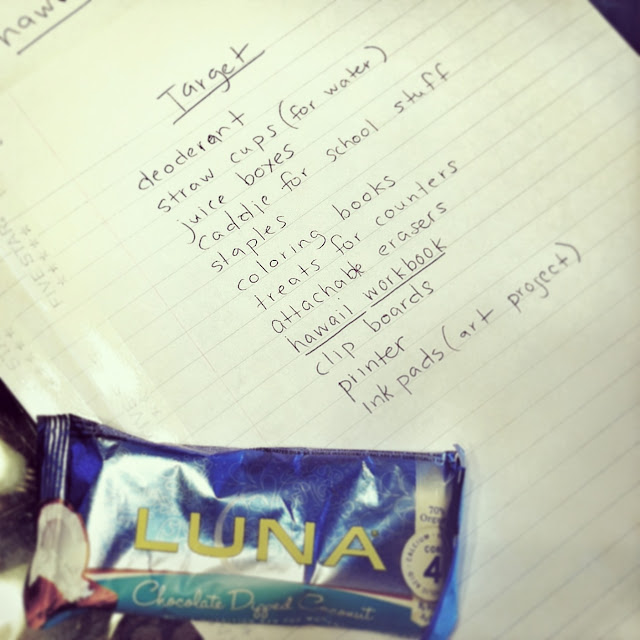 Target
deoderant
straw cups (for water)
juice boxes
caddie for school stuff
staples
coloring books
treats for counters
attachable erasers
hawaii workbook
clip boards
printer
ink pads (art project)
FIVE STAR
LUNA
Chocolate Dipped Coconut
70%
CALCIUM
4